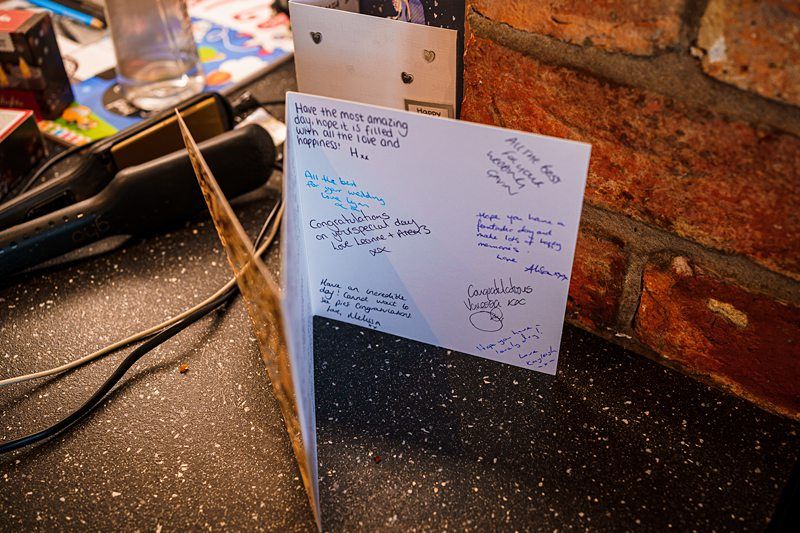 Happy
Have the most amazing
day, hope it is filled
with all the love and
happiness! H xx
All the best
for your wedding
love
Congratulations
on your special day
Love Leanne +
xxx
Have an incredible
day! Cannot wait to
see pics! Congratulations
love, Melissa
ALL THE BEST
FOR YOUR
WEDDING
Hope you have a
day and
make lots of happy
Love
Alison xxx
Congratulations
xxx
Hope you have a
lovely day!
Love
Kayleigh